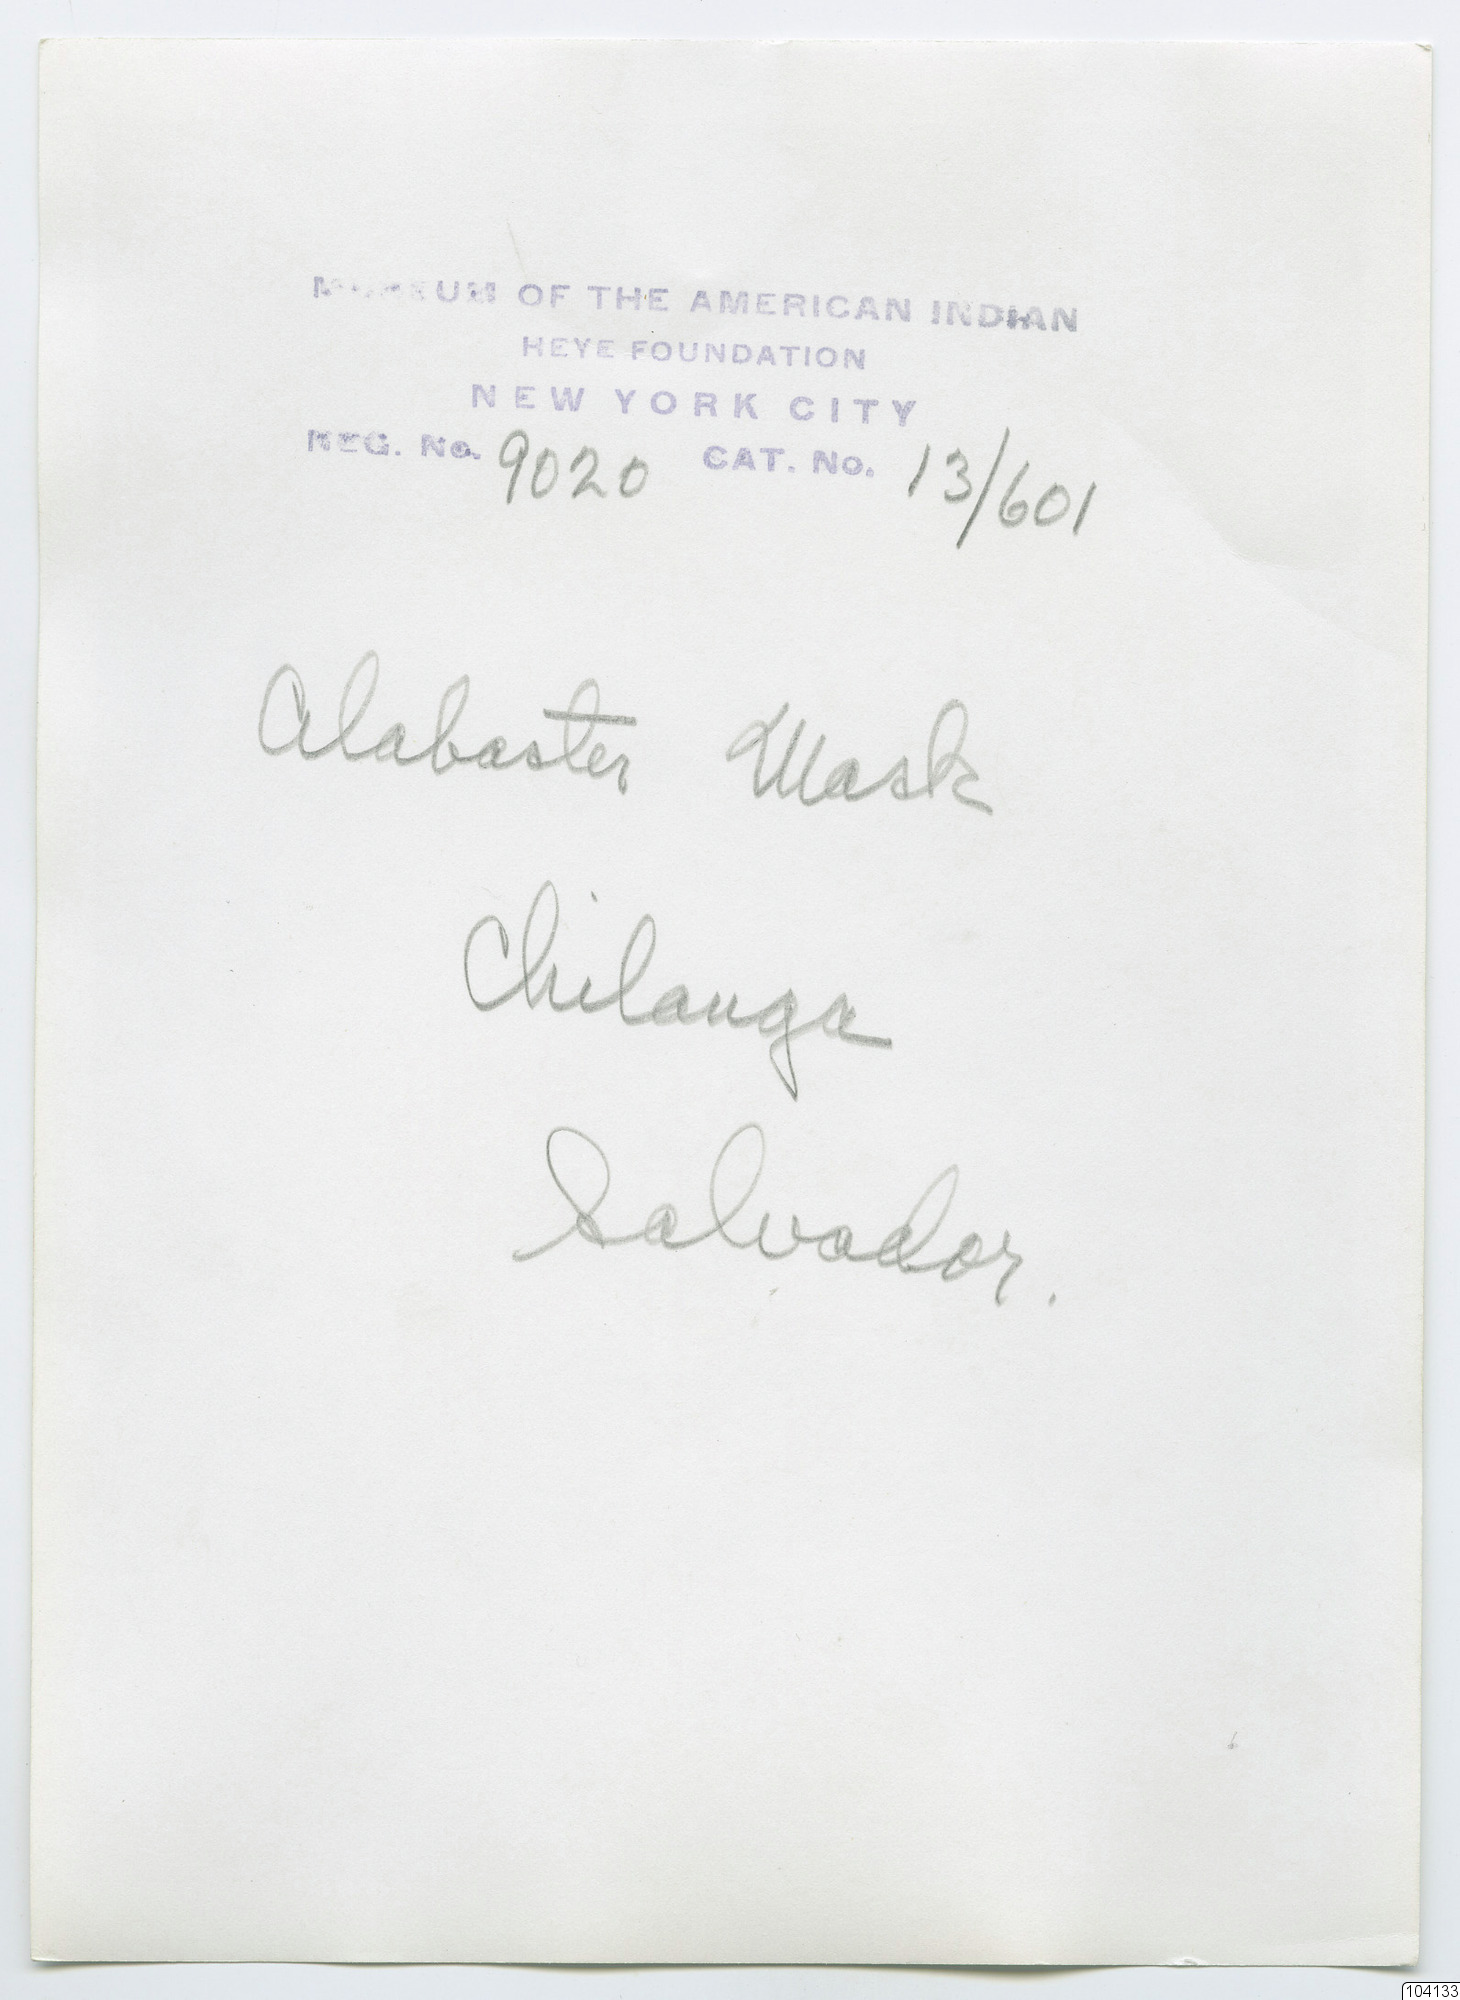 MUSEUM OF THE AMERICAN INDIAN
HEYE FOUNDATION
NEW YORK CITY
NEG. No. 9020 CAT. No. 13/601
Alabaster Mask
Chilanga
Salvador.
104133